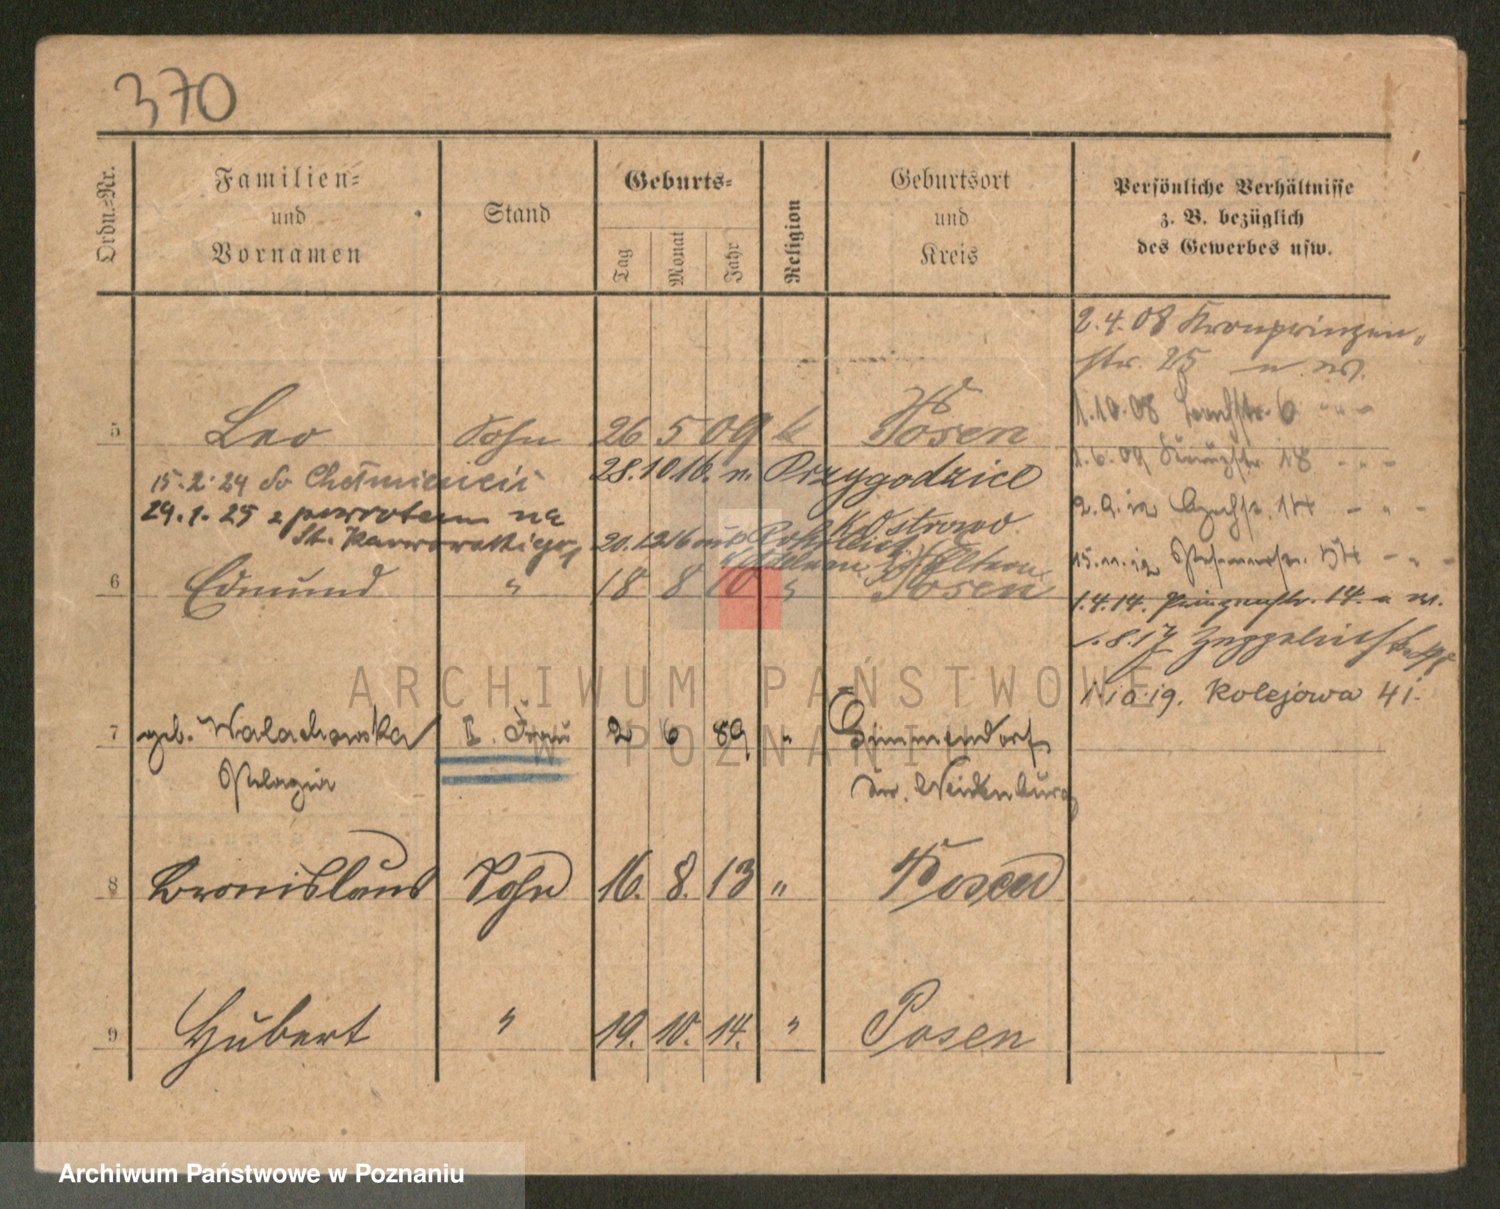 370
Ordn.-Nr.
Familien-
und
Vornamen
Stand
Geburts-
Tag
Monat
Jahr
Religion
Geburtsort
und
Kreis
Persönliche Verhältnisse
z. B. bezüglich
des Gewerbes usw.
2.4.08 Kronprinzen-
str. 25
1.10.08 6
5 Leo Sohn 26 5 09 k Posen
1.6.09 18
15.2.24 do Chełmiciciń 28.10.16. n. Przygodzice
Ostrowo
29.1.25 z powrotem na
2.9.12
St.
20.12.16
15.11.12
6 Edmund " 18 8 10 " Posen
1.4.14. Prinzenstr. 14.
1.8.17 Zeppelinstr.
1.10.19. Kolejowa 41.
7 geb. Walachowska II. Frau 2 6 89 " Gimmendorf
Pelagia Kr. Neidenburg
8 Bronislaus Sohn 16. 8. 13 " Posen
9 Hubert " 19. 10. 14. " Posen
ARCHIWUM PAŃSTWOWE
W POZNANIU
Archiwum Państwowe w Poznaniu